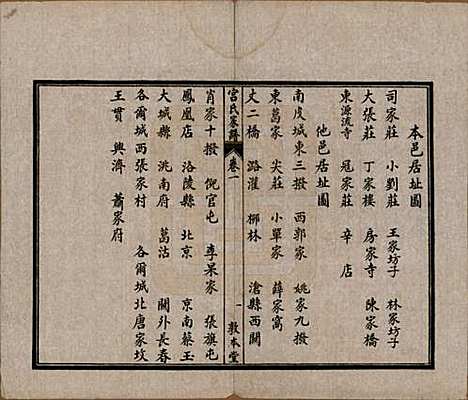 本邑居址圖
司家莊 小劉莊 王家坊子 林家坊子
大張莊 丁家樓 房家寺 陳家橋
東源流寺 寇家莊 辛店
他邑居址圖
南皮城東三撥 西郭家 姚家九撥
東葛家 尖莊 小單家 薛家窩
丈二橋 潞灌 柳林 滄縣西關
宮氏家譜 卷一 一 敦本堂
肖家十撥 倪官屯 李杲家 張旗屯
鳳凰店 洛陵縣 北京 京南蔡玉
大城縣 洮南府 葛沽 關外長春
各爾城西張家村 各爾城北唐家坟
王貫 興濟 蕭家府